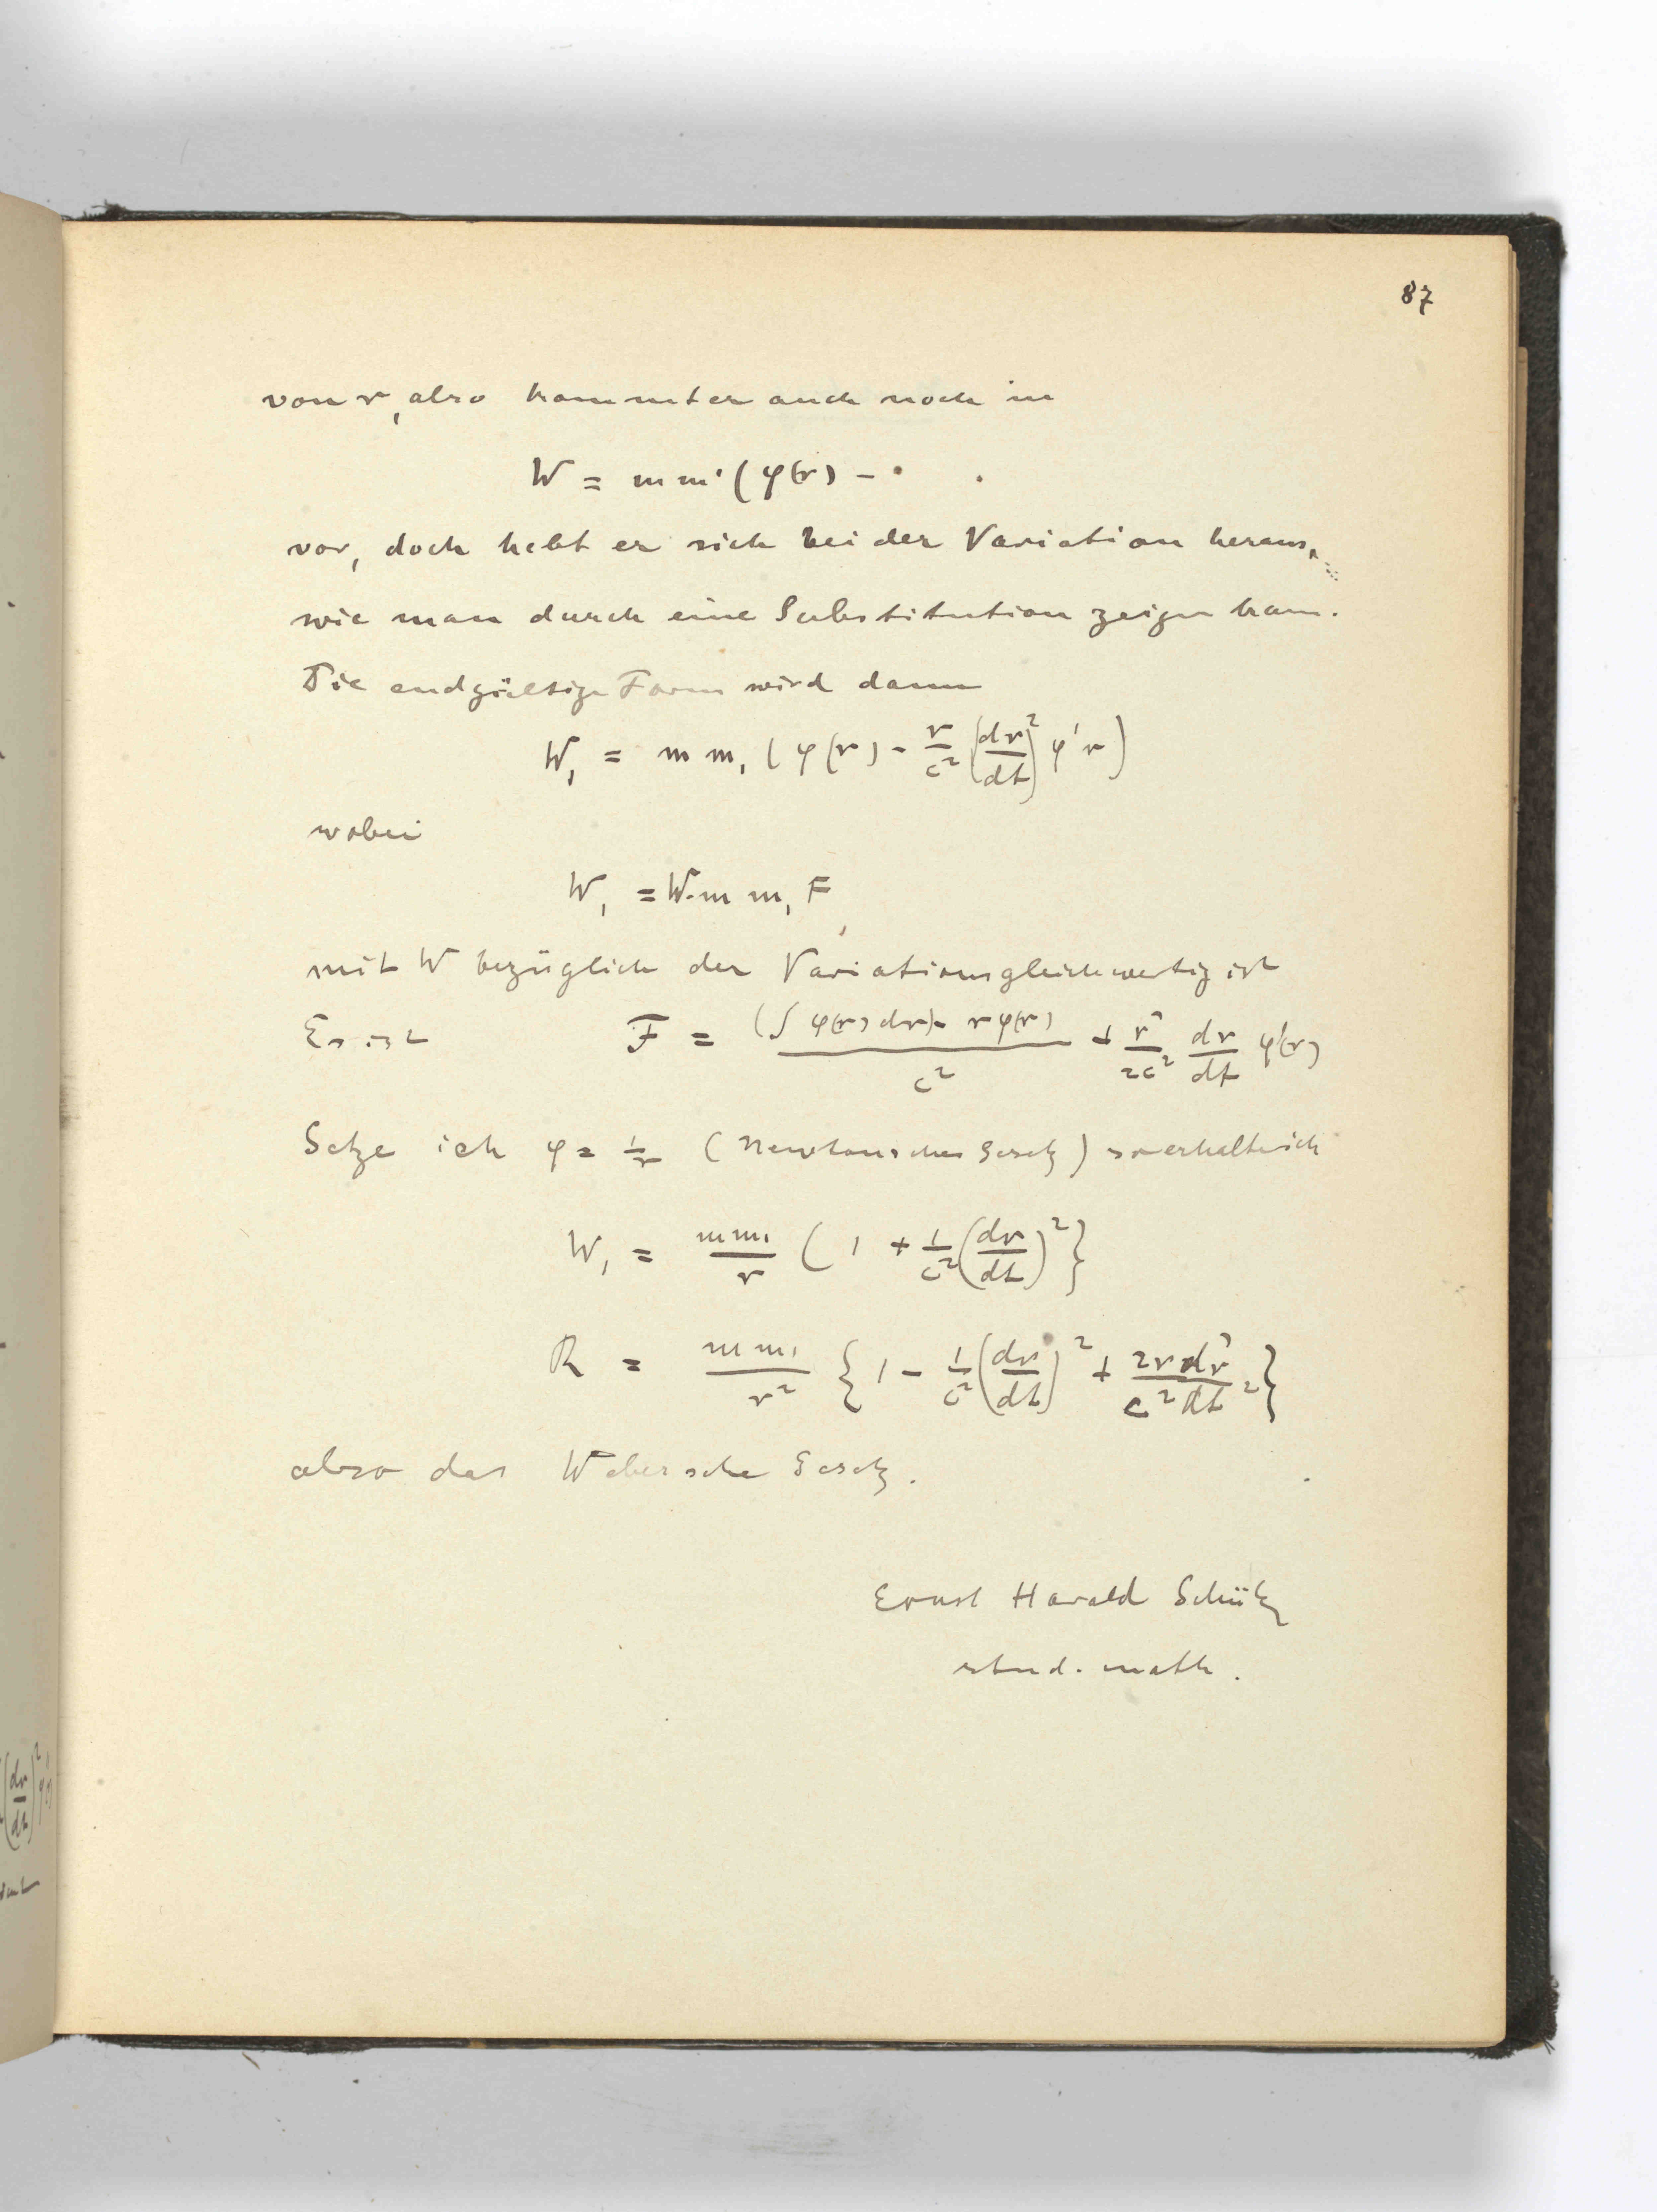 87
von r, also kommt er auch noch in
W = m m' ( φ(r) - · ·
vor, doch hebt er sich bei der Variation heraus,
wie man durch eine Substitution zeigen kann.
Die endgültige Form wird dann
W₁ = m m₁ ( φ(r) - r/c² (dr/dt)² φ'r )
wobei
W₁ = W · m m₁ F
mit W bezüglich der Variation gleichwertig ist
Es ist F = ((∫ φ(r) dr) - r φ(r))/c² + r²/2c² dr/dt φ'(r)
Setze ich φ = 1/r (Newtonsches Gesetz) so erhalte ich
W₁ = m m₁/r ( 1 + 1/c² (dr/dt)² }
R = m m₁/r² { 1 - 1/c² (dr/dt)² + 2r d²r/c² dt² }
also das Webersche Gesetz.
Ernst Harald Schütz
stud. math.
(dr/dt)² φ'(r)